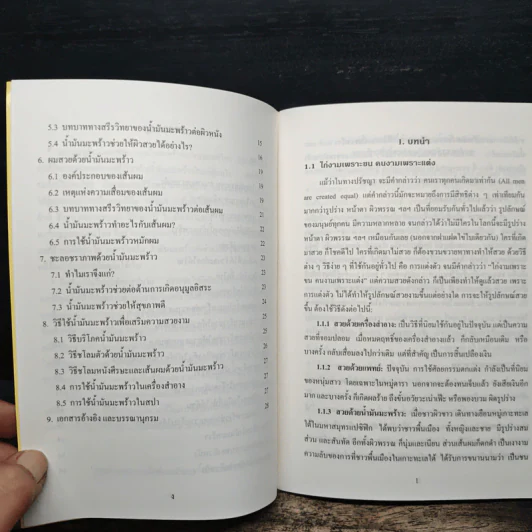 5.3 บทบาททางสรีรวิทยาของน้ำมันมะพร้าวต่อผิวหนัง
5.4 น้ำมันมะพร้าวช่วยให้ผิวสวยได้อย่างไร? 15
6. ผมสวยด้วยน้ำมันมะพร้าว
6.1 องค์ประกอบของเส้นผม
6.2 เหตุแห่งความเสื่อมของเส้นผม
6.3 บทบาททางสรีรวิทยาของน้ำมันมะพร้าวต่อเส้นผม
6.4 น้ำมันมะพร้าวทำอะไรกับเส้นผม?
6.5 การใช้น้ำมันมะพร้าวหมักผม
7. ชะลอชราภาพด้วยน้ำมันมะพร้าว
7.1 ทำไมเราจึงแก่?
7.2 น้ำมันมะพร้าวช่วยต่อต้านการเกิดอนุมูลอิสระ
7.3 น้ำมันมะพร้าวช่วยให้สุขภาพดี
8. วิธีใช้น้ำมันมะพร้าวเพื่อเสริมความสวยงาม
8.1 วิธีบริโภคน้ำมันมะพร้าว
8.2 วิธีชโลมตัวด้วยน้ำมันมะพร้าว
8.3 วิธีชโลมหนังศีรษะและเส้นผมด้วยน้ำมันมะพร้าว
8.4 การใช้น้ำมันมะพร้าวในเครื่องสำอาง
8.5 การใช้น้ำมันมะพร้าวในสปา
9. เอกสารอ้างอิง และบรรณานุกรม
4
1. บทนำ
1.1 ไก่งามเพราะขน คนงามเพราะแต่ง
แม้ว่าในทางปรัชญา จะมีคำกล่าวว่า คนเราทุกคนเกิดมาเท่ากัน (All men
are created equal) แต่คำกล่าวนี้มักจะหมายถึงการมีสิทธิต่าง ๆ เท่าเทียมกัน
มากกว่ารูปร่าง หน้าตา ผิวพรรณ ฯลฯ เป็นที่ยอมรับกันทั่วไปแล้วว่า รูปลักษณ์
ของมนุษย์ทุกคน มีความหลากหลาย จนกล่าวได้ว่าไม่มีใครในโลกนี้จะมีรูปร่าง
หน้าตา ผิวพรรณ ฯลฯ เหมือนกันเลย (นอกจากฝาแฝดไข่ใบเดียวกัน) ใครที่เกิด
มาสวย ก็โชคดีไป ใครที่เกิดมาไม่สวย ก็ต้องขวนขวายหาทางทำให้สวย ด้วยวิธี
ต่าง ๆ วิธีง่าย ๆ ที่ใช้กันอยู่ทั่วไป คือ การแต่งตัว จนมีคำกล่าวว่า “ไก่งามเพราะ
ขน คนงามเพราะแต่ง” แต่ความสวยดังกล่าว ก็เป็นเพียงทำให้ดูแล้วสวย เพราะ
การแต่งตัว ไม่ได้ทำให้รูปลักษณ์สวยงามขึ้นแต่อย่างใด การจะให้รูปลักษณ์สวย
ขึ้น ต้องใช้วิธีดังต่อไปนี้:
1.1.1 สวยด้วยเครื่องสำอาง: เป็นวิธีที่นิยมใช้กันอยู่ในปัจจุบัน แต่เป็นความ
สวยที่จอมปลอม เมื่อหมดฤทธิ์ของเครื่องสำอางแล้ว ก็กลับเหมือนเดิม หรือ
บางครั้ง กลับเสื่อมลงไปกว่าเดิม แต่ที่สำคัญ เป็นการสิ้นเปลืองเงิน
1.1.2 สวยด้วยแพทย์: ปัจจุบัน การใช้ศัลยกรรมตกแต่ง กำลังเป็นที่นิยม
ของหนุ่มสาว โดยเฉพาะในหมู่ดารา นอกจากจะต้องทนเจ็บแล้ว ยังเสียเงินทีละ
มาก และบางครั้ง ก็เกิดผลร้าย ถึงขั้นอวัยวะเน่าเฟะ หรือพองบวม ผิดรูปร่าง
1.1.3 สวยด้วยน้ำมันมะพร้าว: เมื่อชาวผิวขาว เดินทางเยือนหมู่เกาะทะเล
ใต้ในมหาสมุทรแปซิฟิก ได้พบว่าชาวพื้นเมือง ทั้งหญิงและชาย มีรูปร่างสม
ส่วน และสันทัด อีกทั้งผิวพรรณ ก็นุ่มและเนียน ส่วนเส้นผมก็ดกดำ เป็นเงางาม
ความลับของการที่ชาวพื้นเมืองในเกาะทะเลใต้ ได้รับการขนานนามว่า เป็นชน
1